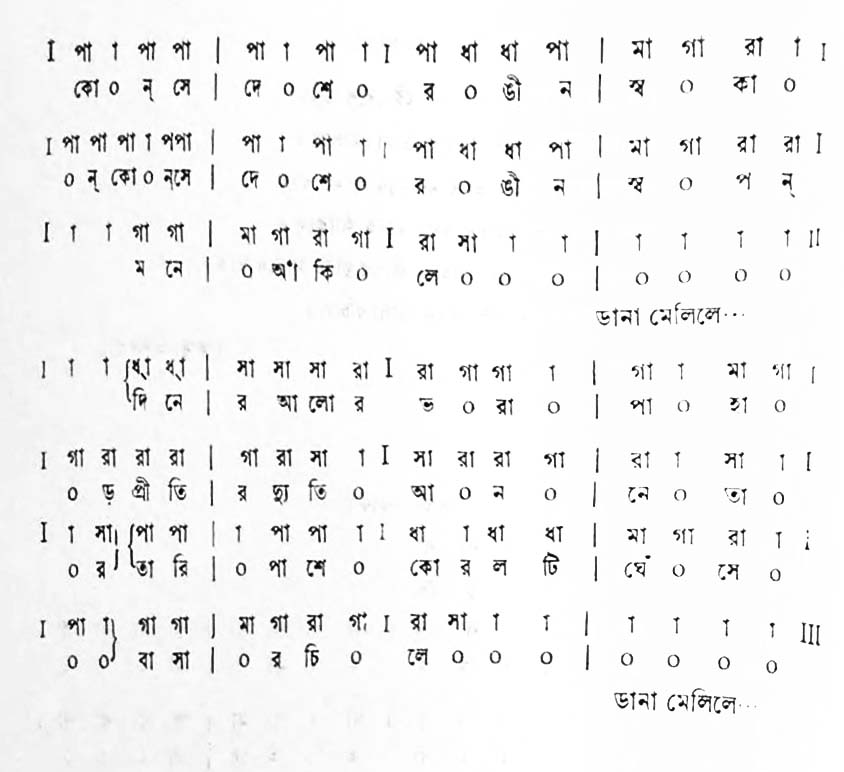 I পা া পা পা | পা া পা া I পা ধা ধা পা | মা গা রা া I
কো ০ ন্ সে | দে ০ শে ০ র ০ ঙী ন | স্ব ০ কা ০
I পা পা পা া পপা | পা া পা া I পা ধা ধা পা | মা গা রা রা I
০ ন্ কো ০ ন্সে | দে ০ শে ০ র ০ ঙী ন | স্ব ০ প ন্
I া া গা গা | মা গা রা গা I রা সা া া | া া া া II
ম নে | ০ আঁ কি ০ লে ০ ০ ০ | ০ ০ ০ ০
ডানা মেলিলে···
I া া {ধ্া ধ্া | সা সা সা রা I রা গা গা া | গা া মা গা I
দি নে | র আ লো র ভ ০ রা ০ | পা ০ হা ০
I গা রা রা রা | গা রা সা া I সা রা রা গা | রা া সা া I
০ ড় প্রী তি | র দ্যু তি ০ আ ০ ন ০ | নে ০ তা ০
I া সা} {পা পা | া পা পা া I ধা া ধা ধা | মা গা রা া I
০ র তা রি | ০ পা শে ০ কো র ল টি | ঘেঁ ০ সে ০
I পা া} গা গা | মা গা রা গা I রা সা া া | া া া া III
০ ০ বা সা | ০ র চি ০ লে ০ ০ ০ | ০ ০ ০ ০
ডানা মেলিলে···